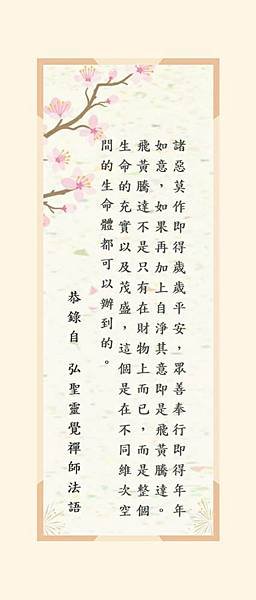 諸惡莫作即得歲歲平安，眾善奉行即得年年
如意，如果再加上自淨其意即是飛黃騰達。
飛黃騰達不是只有在財物上而已，而是整個
生命的充實以及茂盛，這個是在不同維次空
間的生命體都可以辦到的。
恭錄自 弘聖靈覺禪師法語